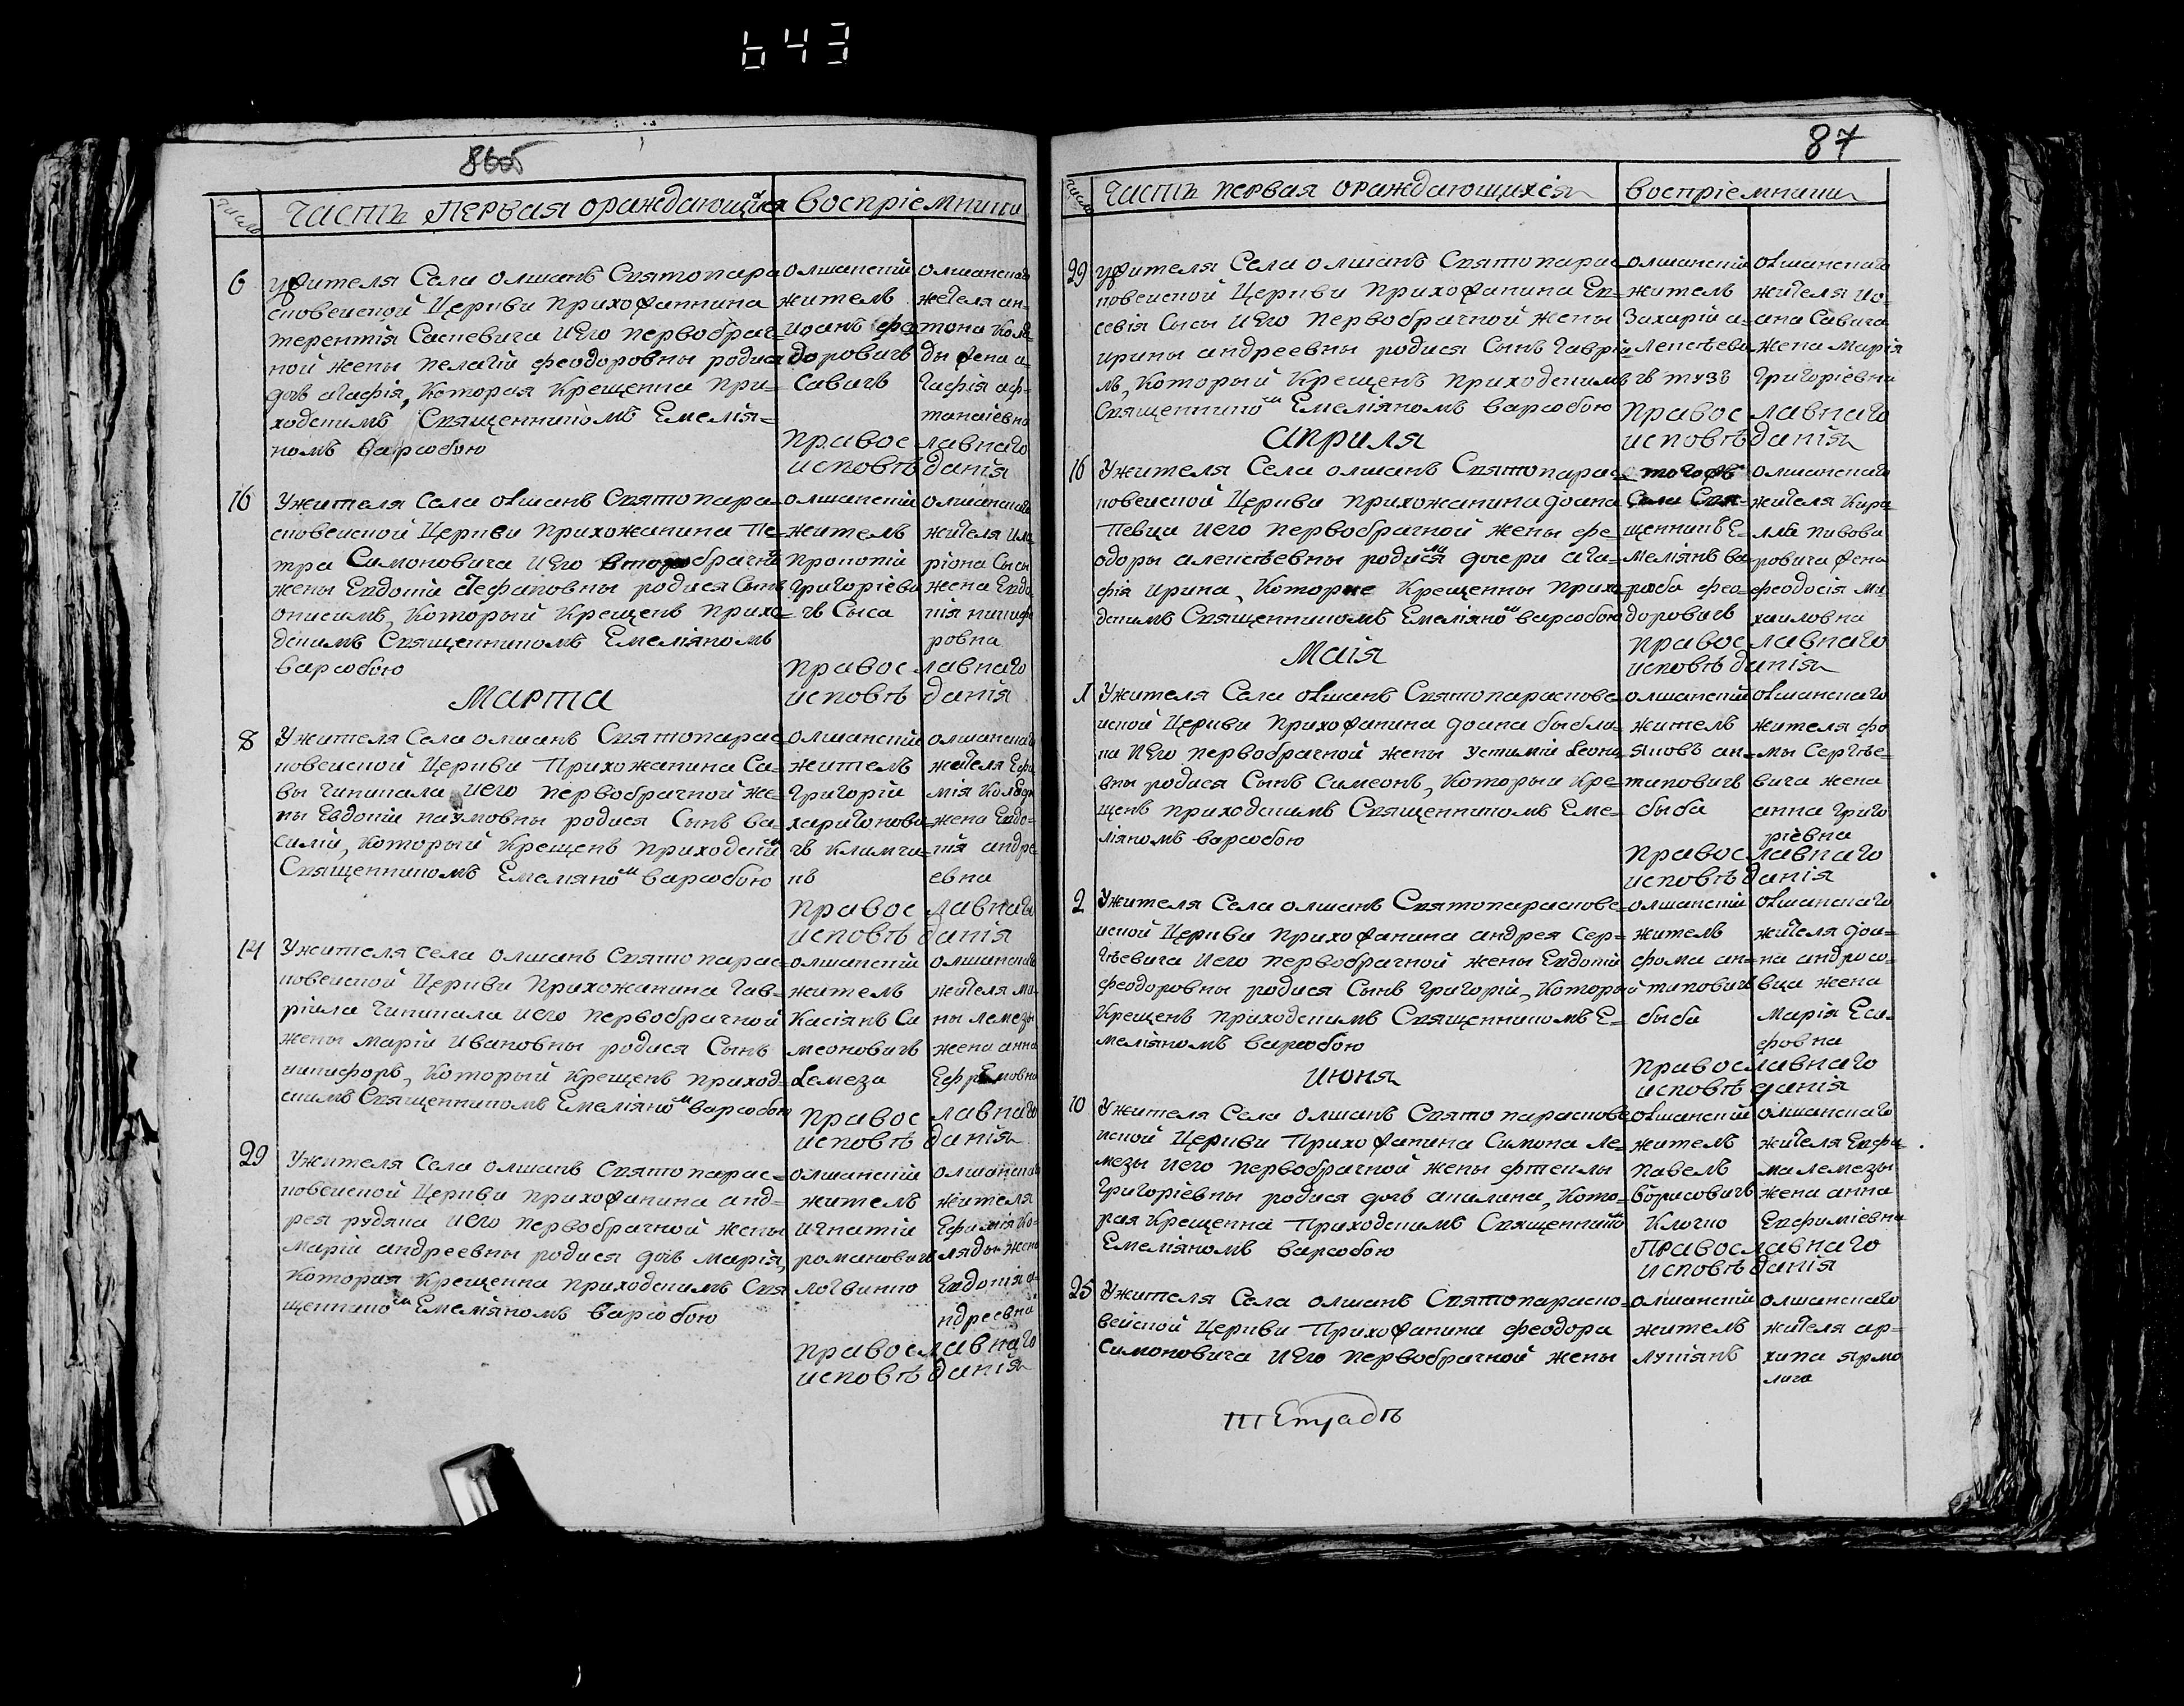 643
число
Часть Первая ораждающихся
Воспріемники
6
ужителя Села олшанъ Святопара=
сковеиской Церкви прихожаннина
терентія Сасневича иего первобрач=
ной жены пелагіи феодоровны родися
дочь агафія, Которая Крещенна при=
ходскимъ Священникомъ Емелія=
номъ варавою
олшанскій
житель
иоанъ фео
доровичъ
Савичъ
олшанскаго
жителя ан=
тона Коля=
ды жена а=
гафія аф=
танасіевна
православнаго
исповѣданія
16
Ужителя Села олшанъ Святопара=
сковеиской Церкви Прихожанина Пе=
тра Симоновича иего второбрачной
жены Евдокіи Стефановны родися Сынъ
онисимъ, Который Крещенъ прихо=
дскимъ Священникомъ Емеліяномъ
олшанскій
житель
Прокопій
григоріеви
чъ Сыса
олшанскаго
жителя Ила
ріона Сысы
жена Евдо
кія никифо
ровна
православнаго
исповѣданія
Марта
8
Ужителя Села олшанъ Святопарас=
ковеиской Церкви Прихожанина Са=
вы Чикинала иего первобрачной же=
ны Евдокіи наумовны родися Сынъ ва=
силій, Который Крещенъ приходскимъ
Священникомъ Емеліяномъ
олшанскій
житель
Григорій
харитонови=
чъ
олшанскаго
жена Евдо=
кія андре
евна
православнаго
исповѣданія
14
Ужителя Села олшанъ Святопарас=
ковеиской Церкви Прихожанина Гав=
ріила Чикинала иего первобрачной
жены марій Ивановны родися Сынъ
никифоръ, Который Крещенъ приход=
скимъ Священникомъ Емеліяномъ
олшанскій
житель
Касіянъ Си
меоновичъ
Лемеза
олшанскаго
жителя ми
ны лемезы
жена анна
Ефремовна
православнаго
исповѣданія
29
Ужителя Села олшанъ Святопарас=
ковеиской Церкви прихожанина анд=
рея рудяка иего первобрачной жены
Марій андреевны родися дочь Марія,
Которая Крещенна приходскимъ Свя
щенникомъ Емеліяномъ
олшанскій
житель
игнатій
романовичъ
логвинко
олшанскаго
жителя
Ефимія Ко=
ляды жена
Евдокія а=
ндреевна
православнаго
исповѣданія
87
число
Часть первая ораждающихся
воспріемники
29
ужителя Села олшанъ Святопарас=
ковеиской Церкви Прихожанина Ев=
севія Сысы иего первобрачной жены
ирины андреевны родися Сынъ гаврій=
лъ, Который Крещенъ приходскимъ
Священникомъ Емеліяномъ
олшанскій
житель
Захарій а=
лексѣеви
чъ тузъ
олшанскаго
жителя ио=
ана Савича
жена Марія
григоріевна
православнаго
исповѣданія
априля
16
Ужителя Села олшанъ Святопарас=
ковеиской Церкви прихожанина іоана
Певца иего первобрачной жены фе=
одоры алексѣевны родися дочери ага=
фія ирина, Которые Крещенны прихо=
дскимъ Священникомъ Емеліяномъ
тогожъ
Села Свя=
щенникъ Е=
меліянъ ва=
фео=
доровичъ
олшанскаго
жителя Кири
ла пивова
ровича жена
феодосія ми
хаиловна
православнаго
исповѣданія
Маія
1
Ужителя Села олшанъ Святопараскове=
иской Церкви Прихожанина іоана
иего первобрачной жены
вны родися Сынъ Симеонъ, Который Кре=
щенъ приходскимъ Священникомъ Еме=
ліяномъ
олшанскій
житель
яковъ ан=
типовичъ
быба
олшанскаго
жителя фо
мы Сергѣе=
вича жена
анна григо
ріевна
православнаго
исповѣданія
2
Ужителя Села олшанъ Святопараскове=
иской Церкви прихожанина андрея Сер=
гѣевича иего первобрачной жены Евдокіи
феодоровны родися Сынъ григорій, Который
Крещенъ приходскимъ Священникомъ Е=
меліяномъ
олшанскій
житель
фома ан=
типовичъ
быба
олшанскаго
жителя іоа=
на андросо=
вца жена
Марія
православнаго
исповѣданія
июня
10
Ужителя Села олшанъ Святопараскове
иской Церкви Прихожанина Симона ле=
мезы иего первобрачной жены фтеклы
григоріевны родися дочь акилина, Кото=
рая Крещенна Приходскимъ Священникомъ
Емеліяномъ
олшанскій
житель
Павелъ
борисовичъ
Клочко
олшанскаго
жителя Евфи
ма лемезы
жена анна
Евфиміевна
Православнаго
исповѣданія
25
Ужителя Села олшанъ Святопараско=
вейской Церкви Прихожанина феодора
Симоновича иего первобрачной жены
олшанскій
житель
лукіянъ
олшанскаго
жителя ар=
хипа ярмо
лича
тетрадь